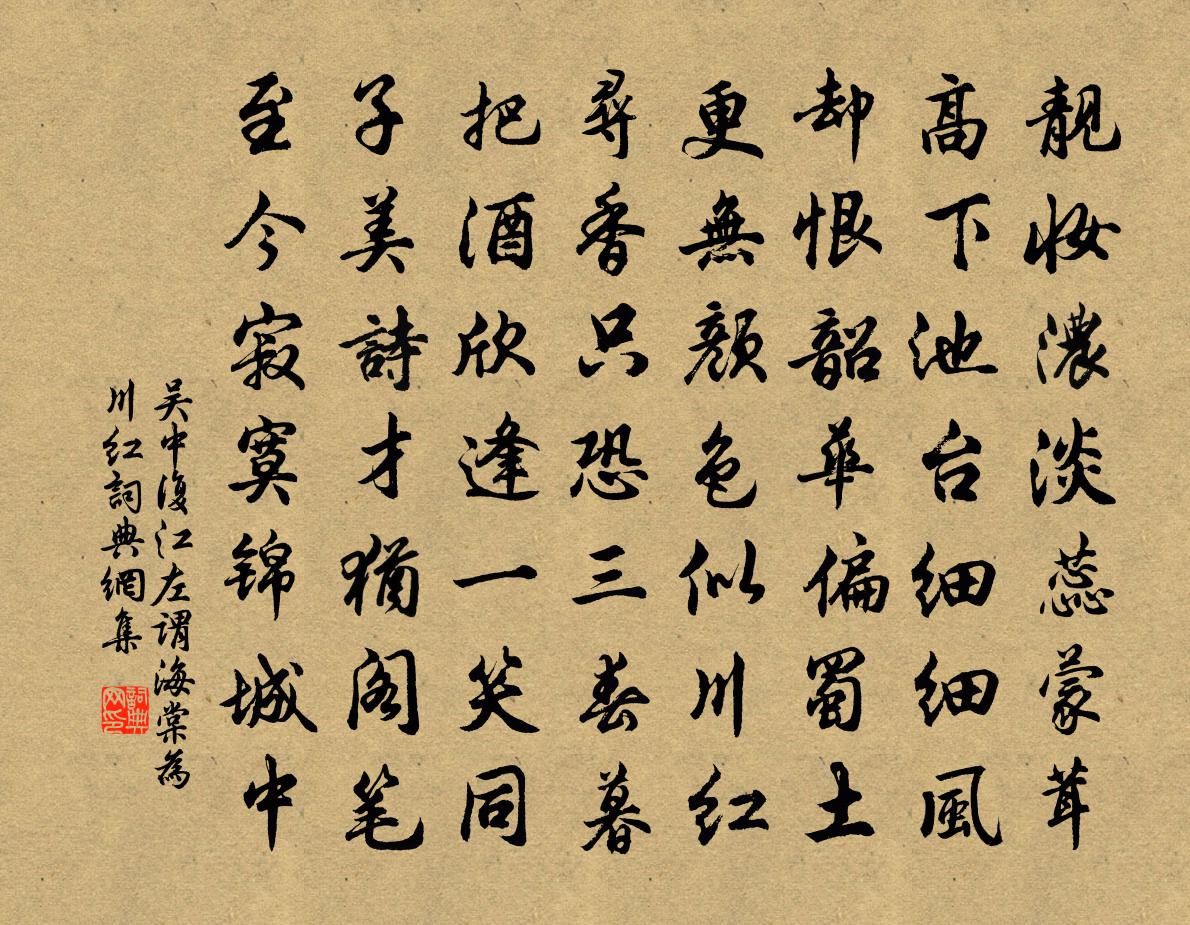 靓妝濃淡蕊蒙茸
高下池台細細風
却恨韶華偏蜀土
更無顏色似川红
尋香只恐三春暮
把酒欣逢一笑同
子美詩才猶閣笔
至今寂寞锦城中
吴中復江左谓海棠為
川红詞典網集
詞典网印